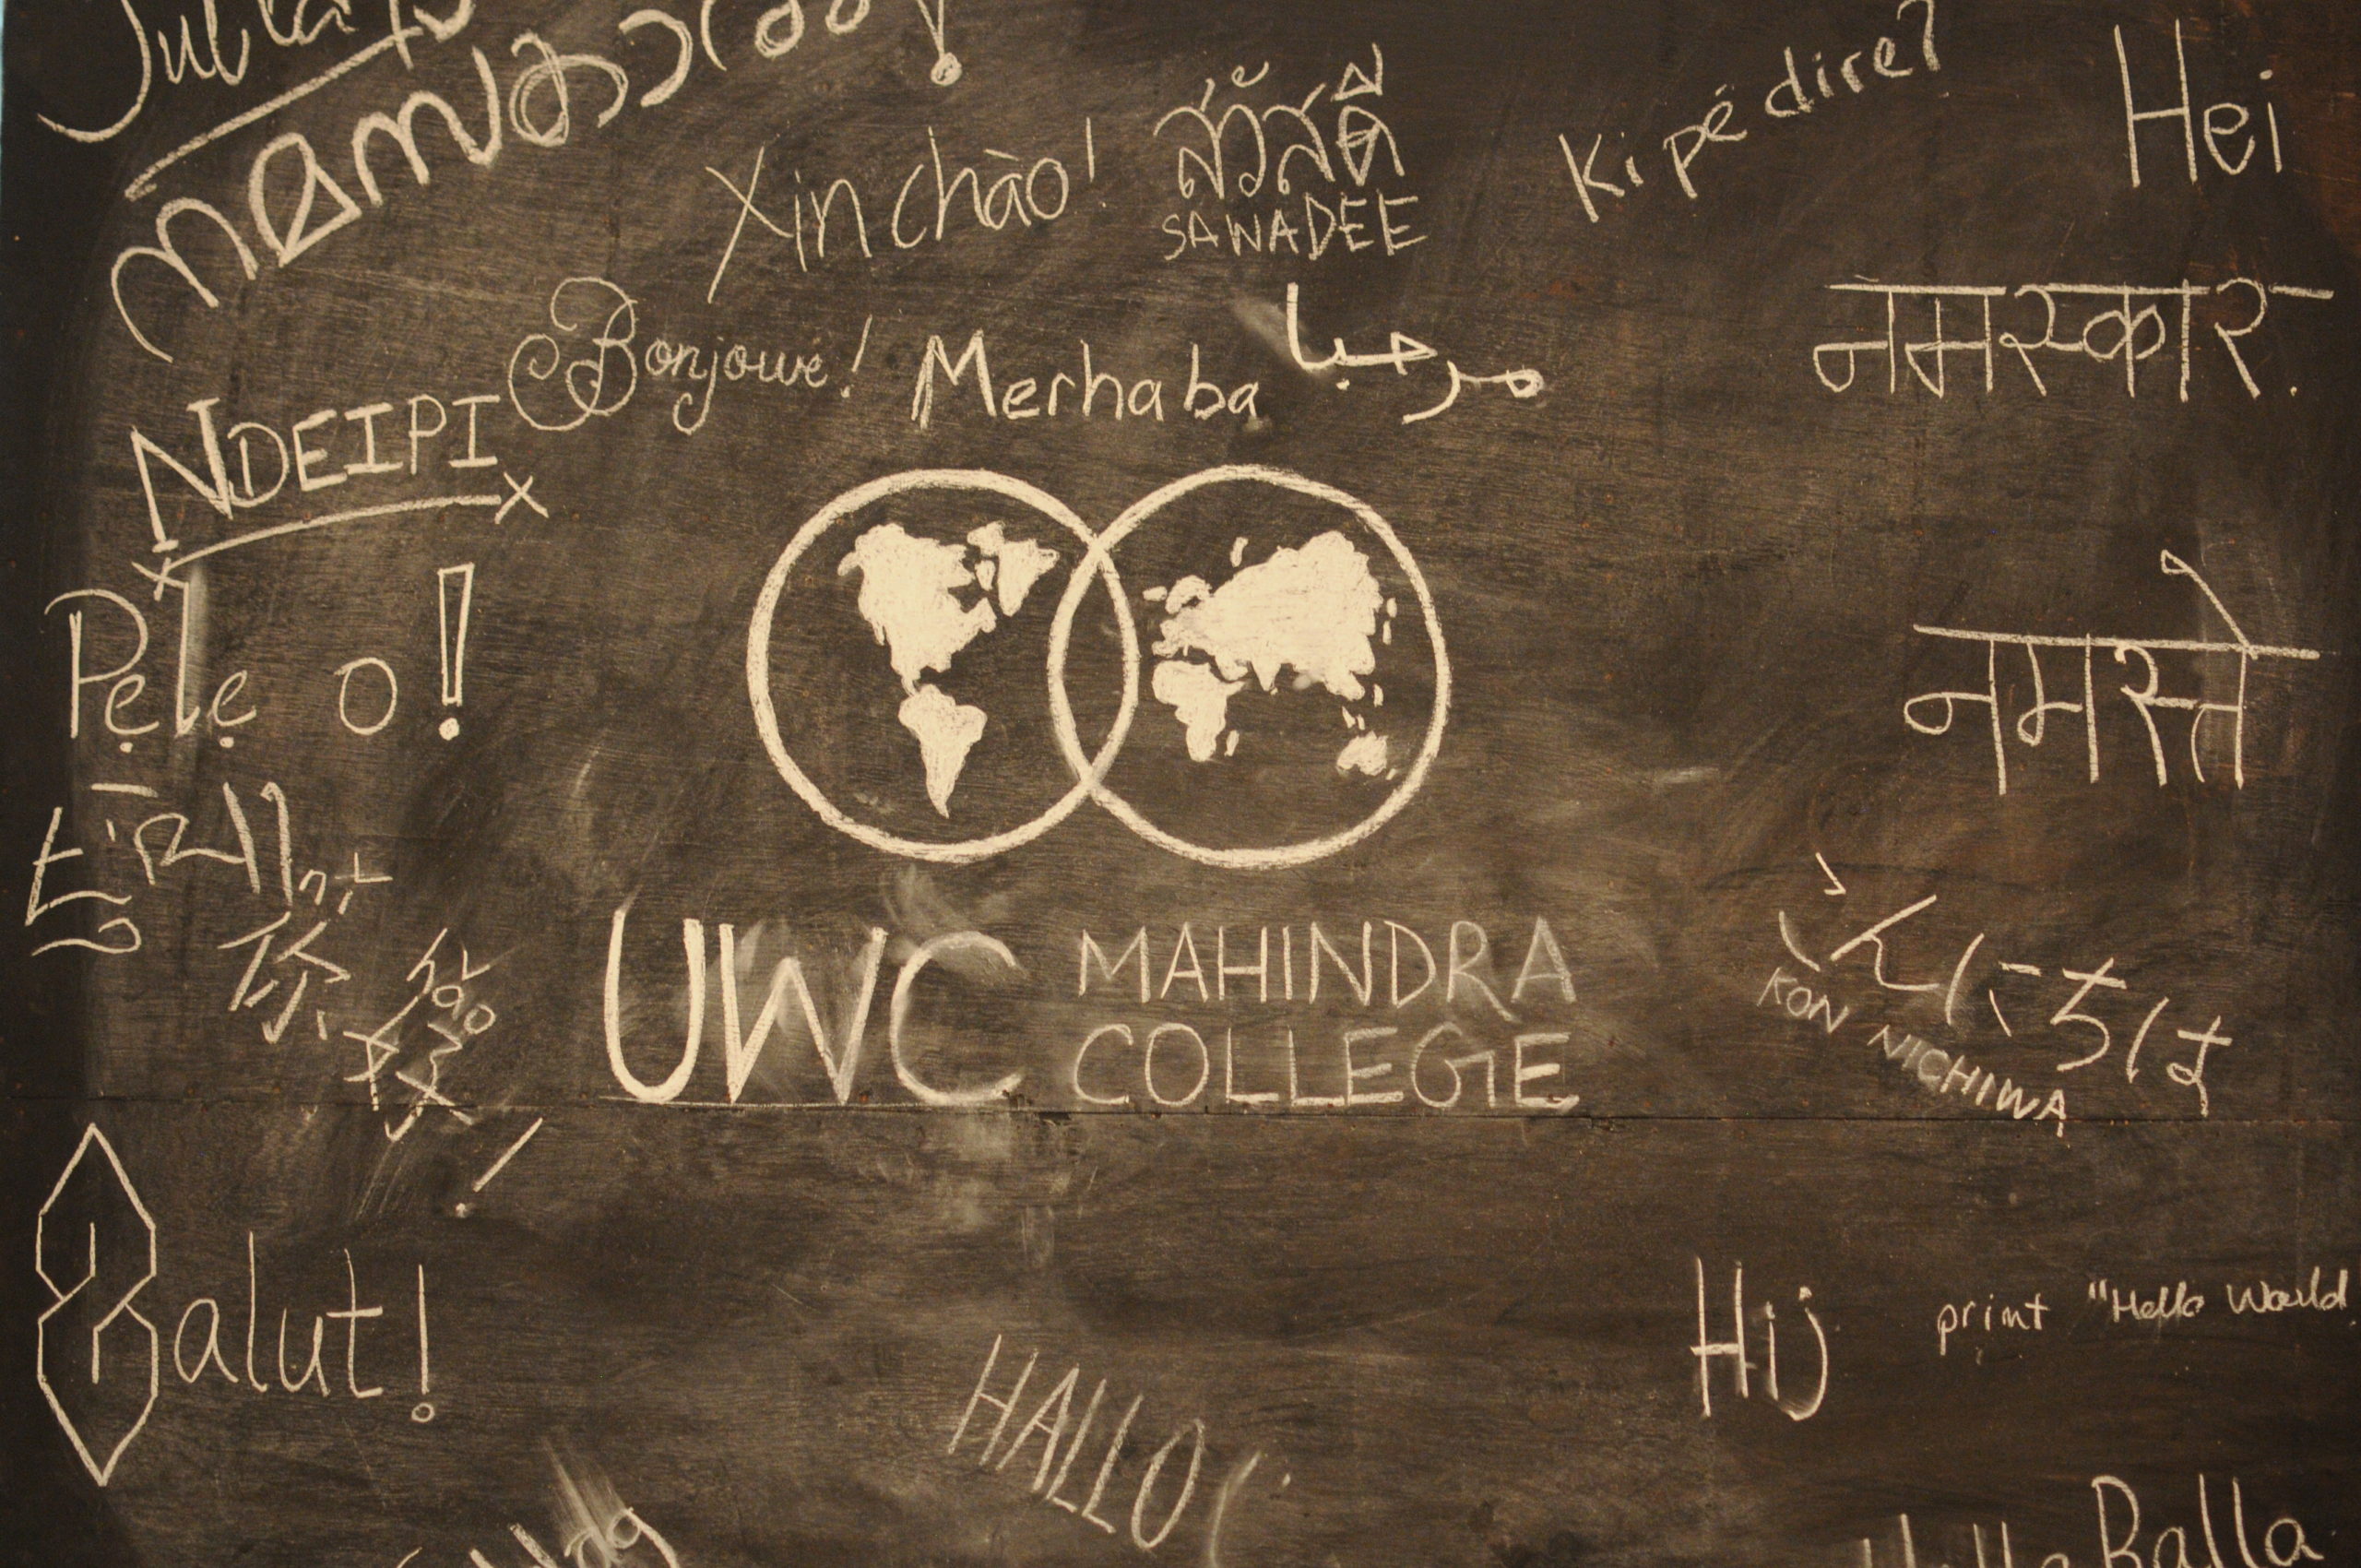 നമസ്കാരം!
Xin chào!
สวัสดี
SAWADEE
Ki pé dire?
Hei
Bonjowé!
Merhaba
مرحبا
नमस्कार.
NDEIPI
Pẹlẹ o!
नमस्ते
你好
nǐ hǎo
!
UWC MAHINDRA
COLLEGE
こんにちは
KON NICHIWA
Salut!
Hij
print "Hello World
HALLO
Balla